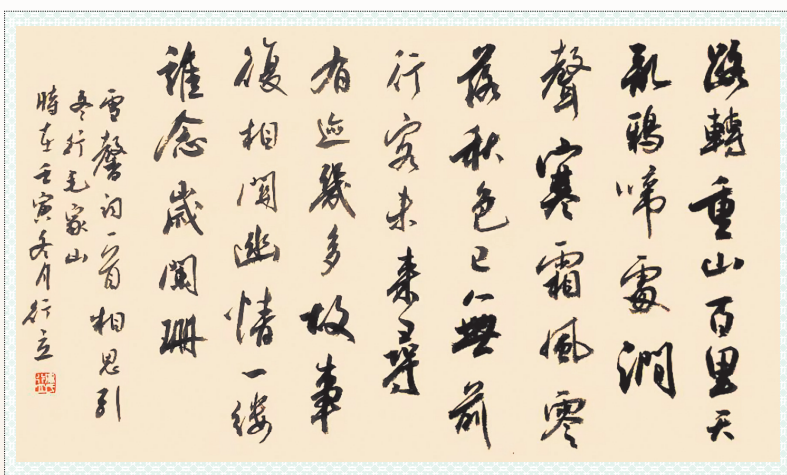 路轉重山百里天
亂鴉啼處澗
聲寒霜風零
落秋色已無前
行客未來尋
有迹幾多故事
復相關幽情一縷
誰念歲闌珊
雪馨詞一首相思引
冬行毛家山
時在壬寅冬月行立